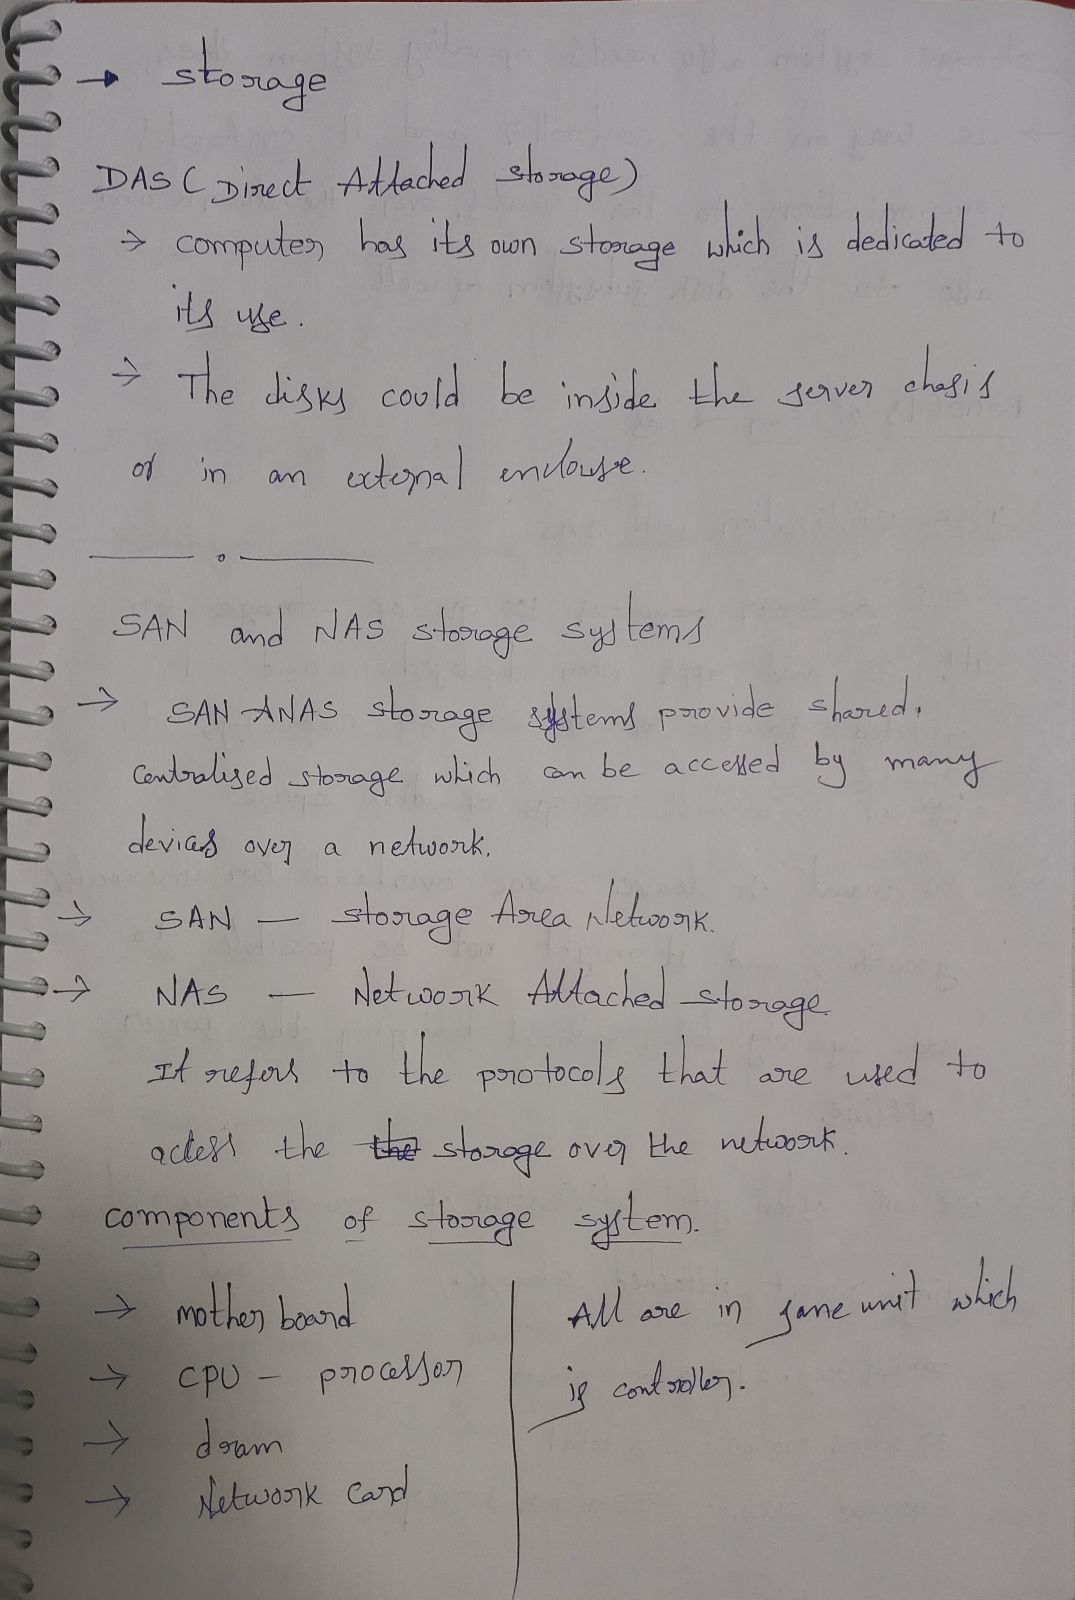 → storage
DAS (Direct Attached storage)
→ computer has its own storage which is dedicated to
its use.
→ The disks could be inside the server chasis
or in an external enclouse.
SAN and NAS storage systems
→ SAN & NAS storage systems provide shared,
centralised storage which can be accessed by many
devices over a network.
→ SAN — storage Area Network.
→ NAS — Network Attached storage
It refers to the protocols that are used to
access the the storage over the network.
components of storage system.
→ mother board
→ CPU - processor
→ dram
→ Network card
All are in same unit which
is controller.